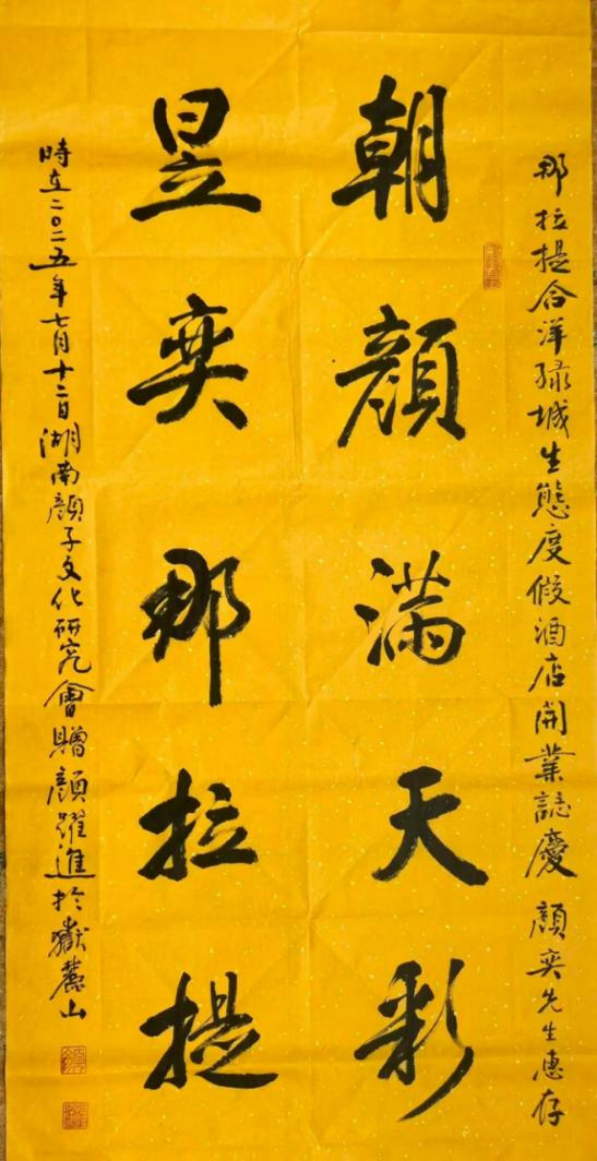 那拉提合洋绿城生態度假酒店開業誌慶 顔奕先生惠存
朝顔滿天彩
昱奕那拉提
時在二〇二五年七月十二日湖南顔子文化研究會贈顔躍進於嶽麓山